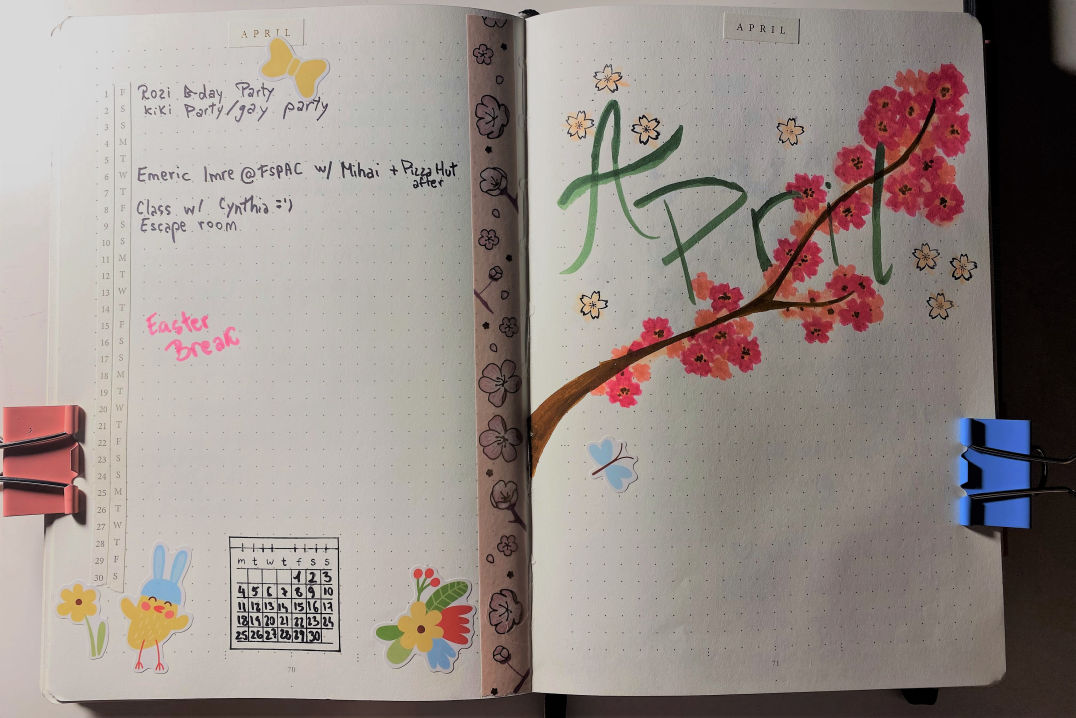 APRIL
1 F Rozi B-day Party
2 S Kiki Party/gay party
3 S
4 M
5 T
6 W Emeric Imre @FSPAC w/ Mihai + Pizza Hut
after
7 T
8 F Class w/ Cynthia =')
9 S Escape room
10 S
11 M
12 T
13 W
14 T
15 F Easter
16 S Break
17 S
18 M
19 T
20 W
21 T
22 F
23 S
24 S
25 M
26 T
27 W
28 T
29 F
30 S
m t w t f s s
1 2 3
4 5 6 7 8 9 10
11 12 13 14 15 16 17
18 19 20 21 22 23 24
25 26 27 28 29 30
70
APRIL
April
71